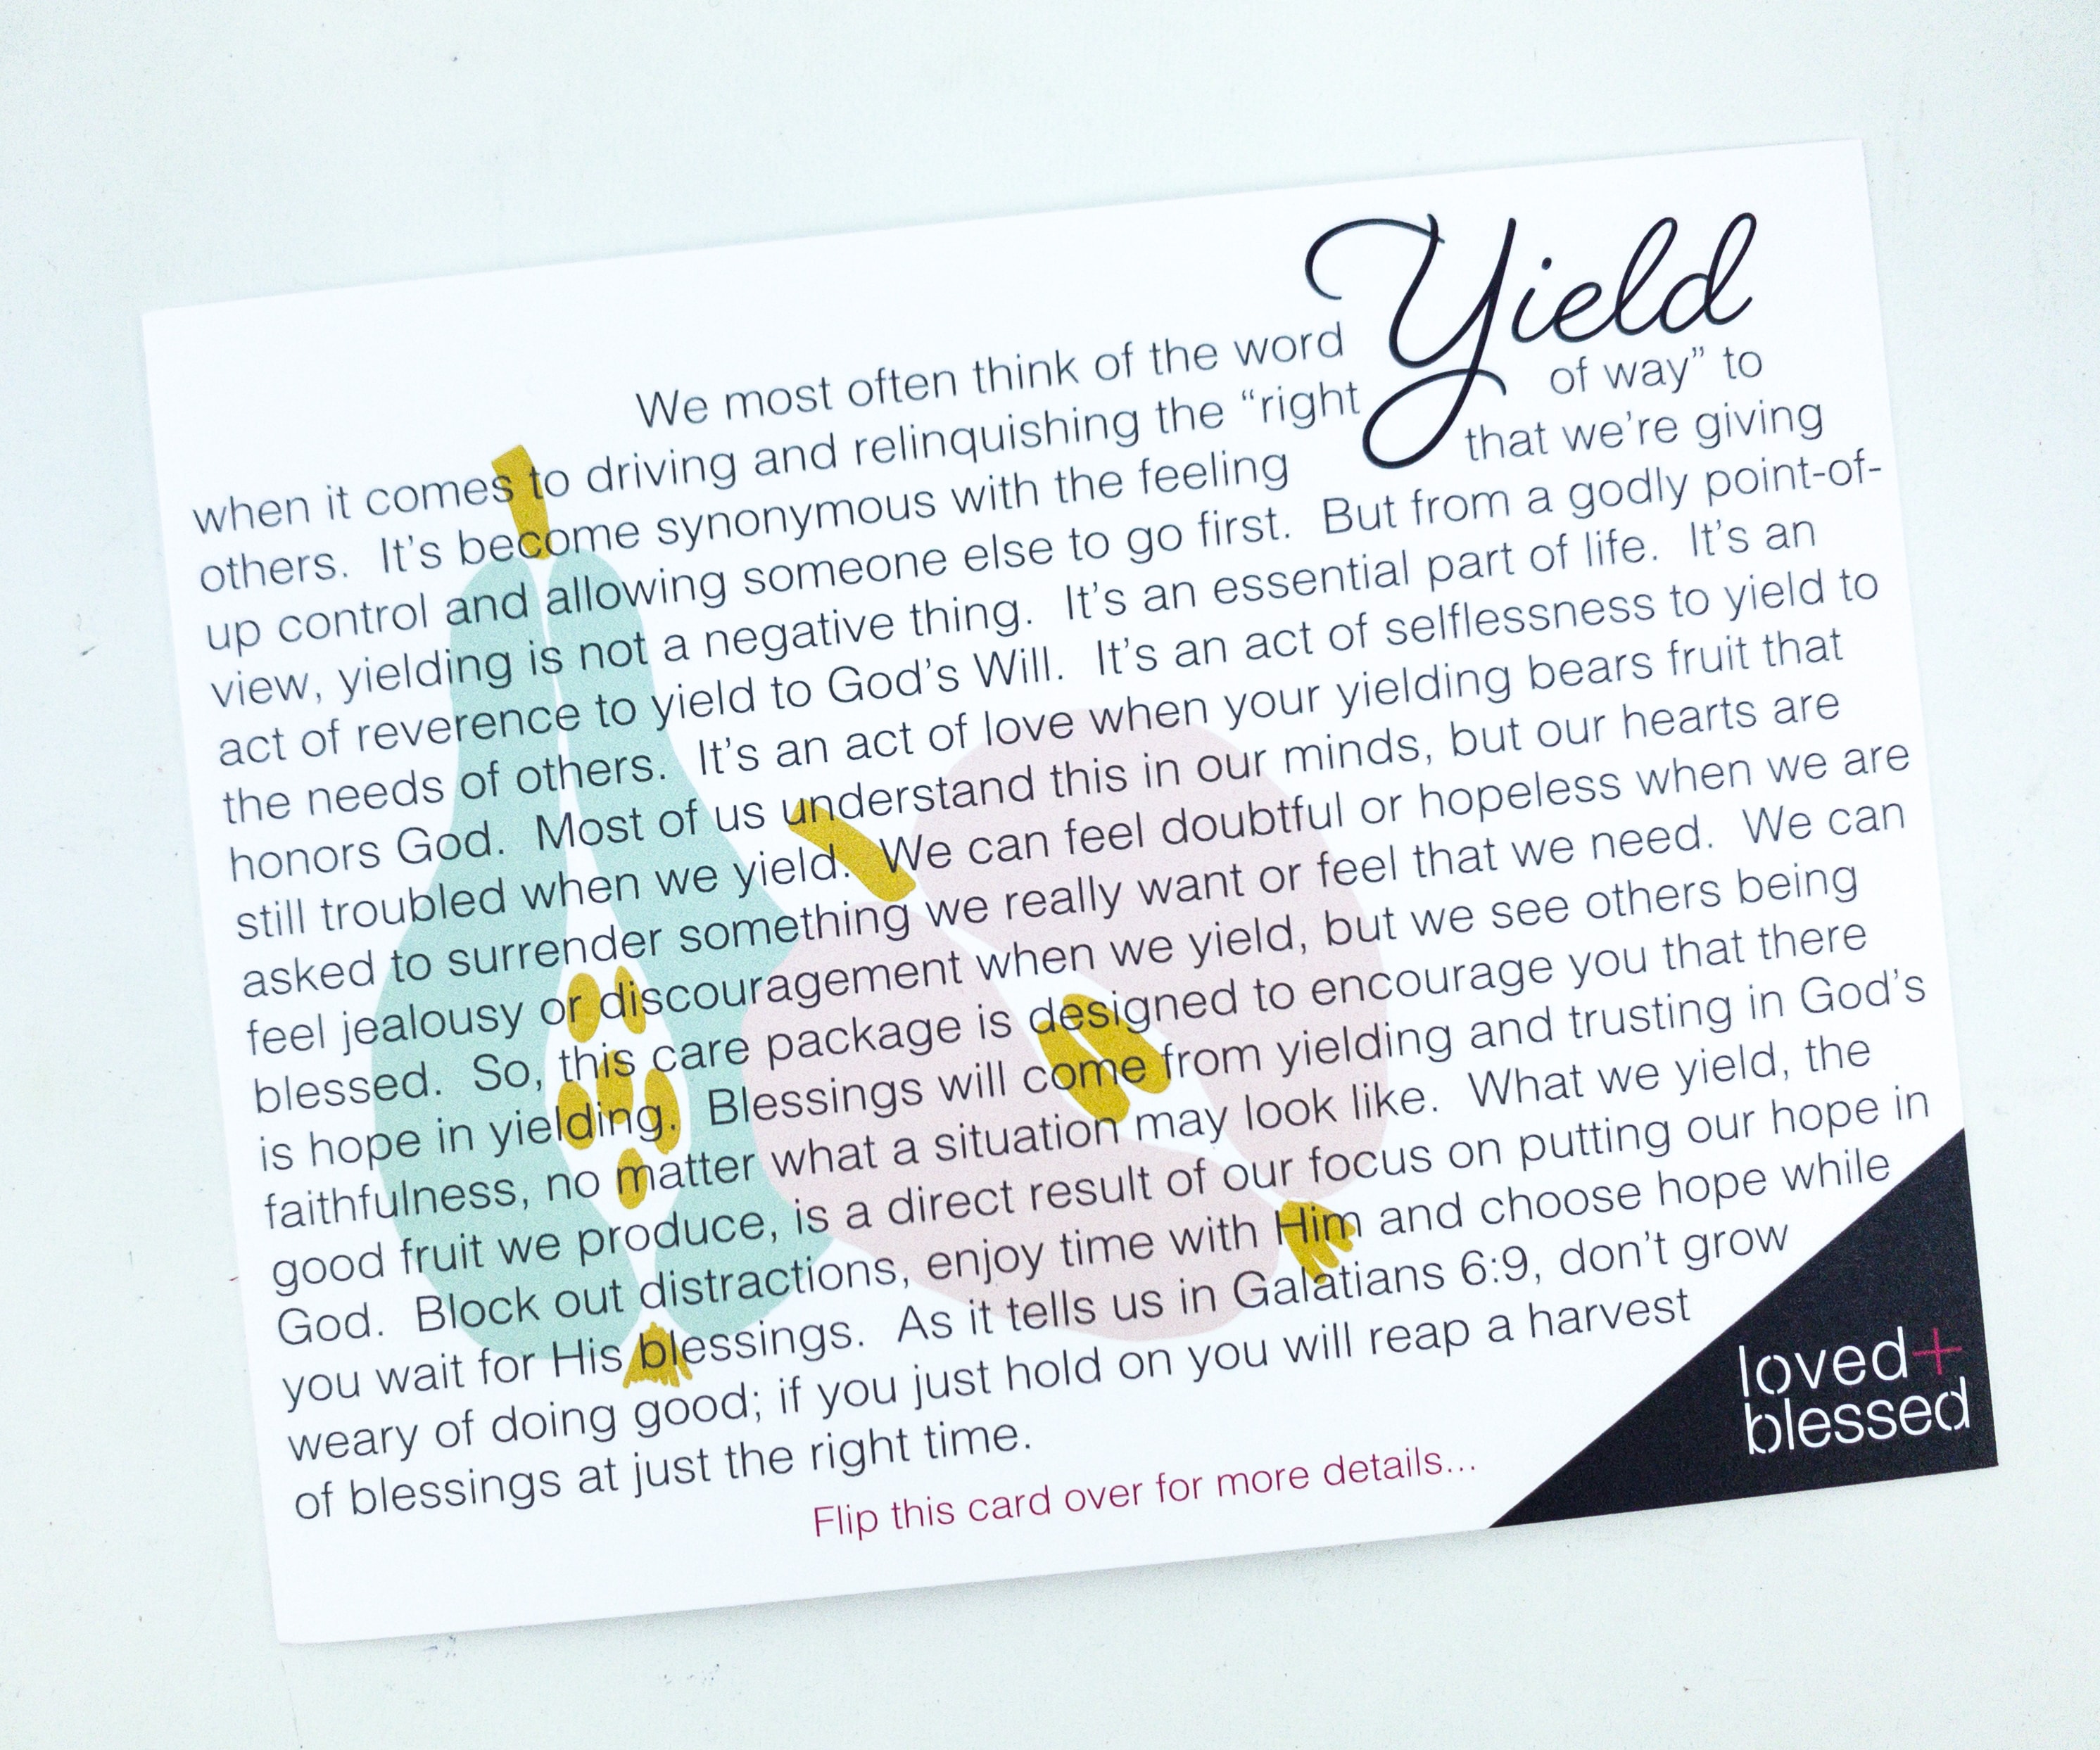 We most often think of the word Yield
when it comes to driving and relinquishing the “right of way” to
others. It’s become synonymous with the feeling that we’re giving
up control and allowing someone else to go first. But from a godly point-of-
view, yielding is not a negative thing. It’s an essential part of life. It’s an
act of reverence to yield to God’s Will. It’s an act of selflessness to yield to
the needs of others. It’s an act of love when your yielding bears fruit that
honors God. Most of us understand this in our minds, but our hearts are
still troubled when we yield. We can feel doubtful or hopeless when we are
asked to surrender something we really want or feel that we need. We can
feel jealousy or discouragement when we yield, but we see others being
blessed. So, this care package is designed to encourage you that there
is hope in yielding. Blessings will come from yielding and trusting in God’s
faithfulness, no matter what a situation may look like. What we yield, the
good fruit we produce, is a direct result of our focus on putting our hope in
God. Block out distractions, enjoy time with Him and choose hope while
you wait for His blessings. As it tells us in Galatians 6:9, don’t grow
weary of doing good; if you just hold on you will reap a harvest
of blessings at just the right time.
Flip this card over for more details...
loved+
blessed